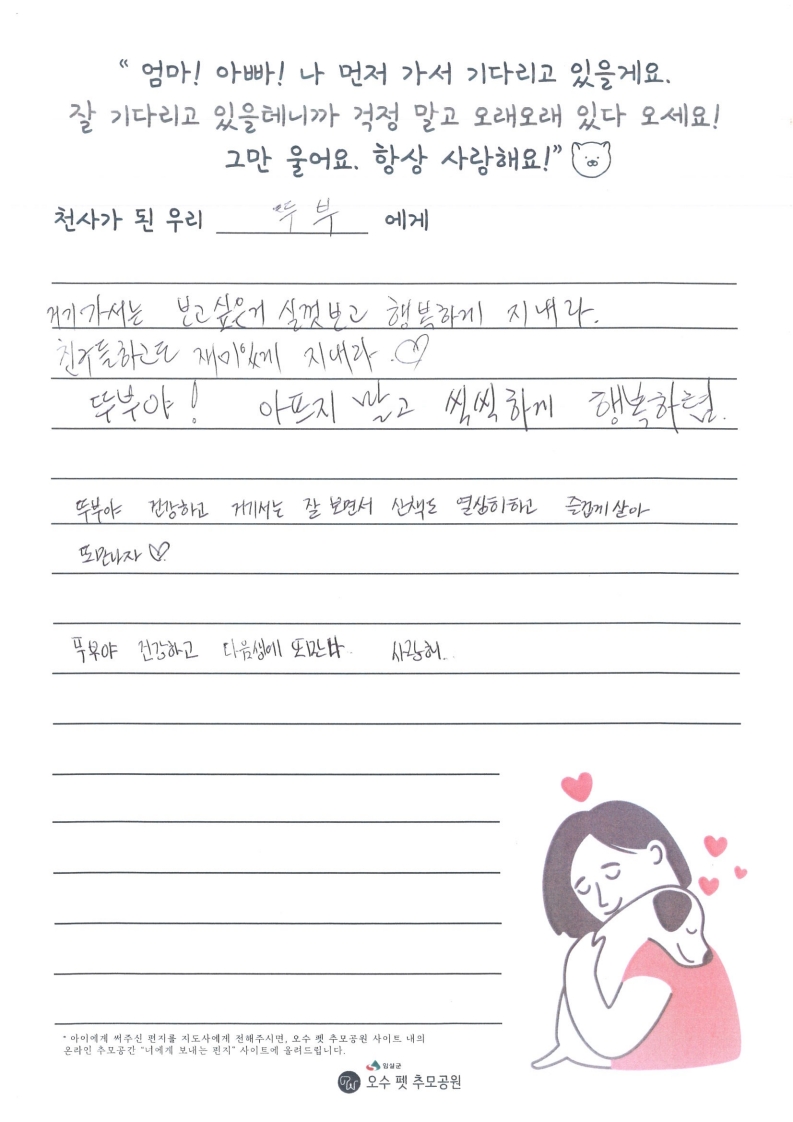 “ 엄마! 아빠! 나 먼저 가서 기다리고 있을게요.
잘 기다리고 있을테니까 걱정 말고 오래오래 있다 오세요!
그만 울어요. 항상 사랑해요!”
천사가 된 우리 뚜부 에게
거기가서는 보고싶은거 실껏보고 행복하게 지내라.
친구들하고도 재미있게 지내라. ♡
뚜부야! 아프지 말고 씩씩하게 행복하렴.
뚜부야 건강하고 거기서는 잘 보면서 산책도 열심히하고 즐겁게살아
또만나자 ♡
뚜부야 건강하고 다음생에 또만나. 사랑해..
* 아이에게 써주신 편지를 지도사에게 전해주시면, 오수 펫 추모공원 사이트 내의
온라인 추모공간 “너에게 보내는 편지” 사이트에 올려드립니다.
임실군
오수 펫 추모공원